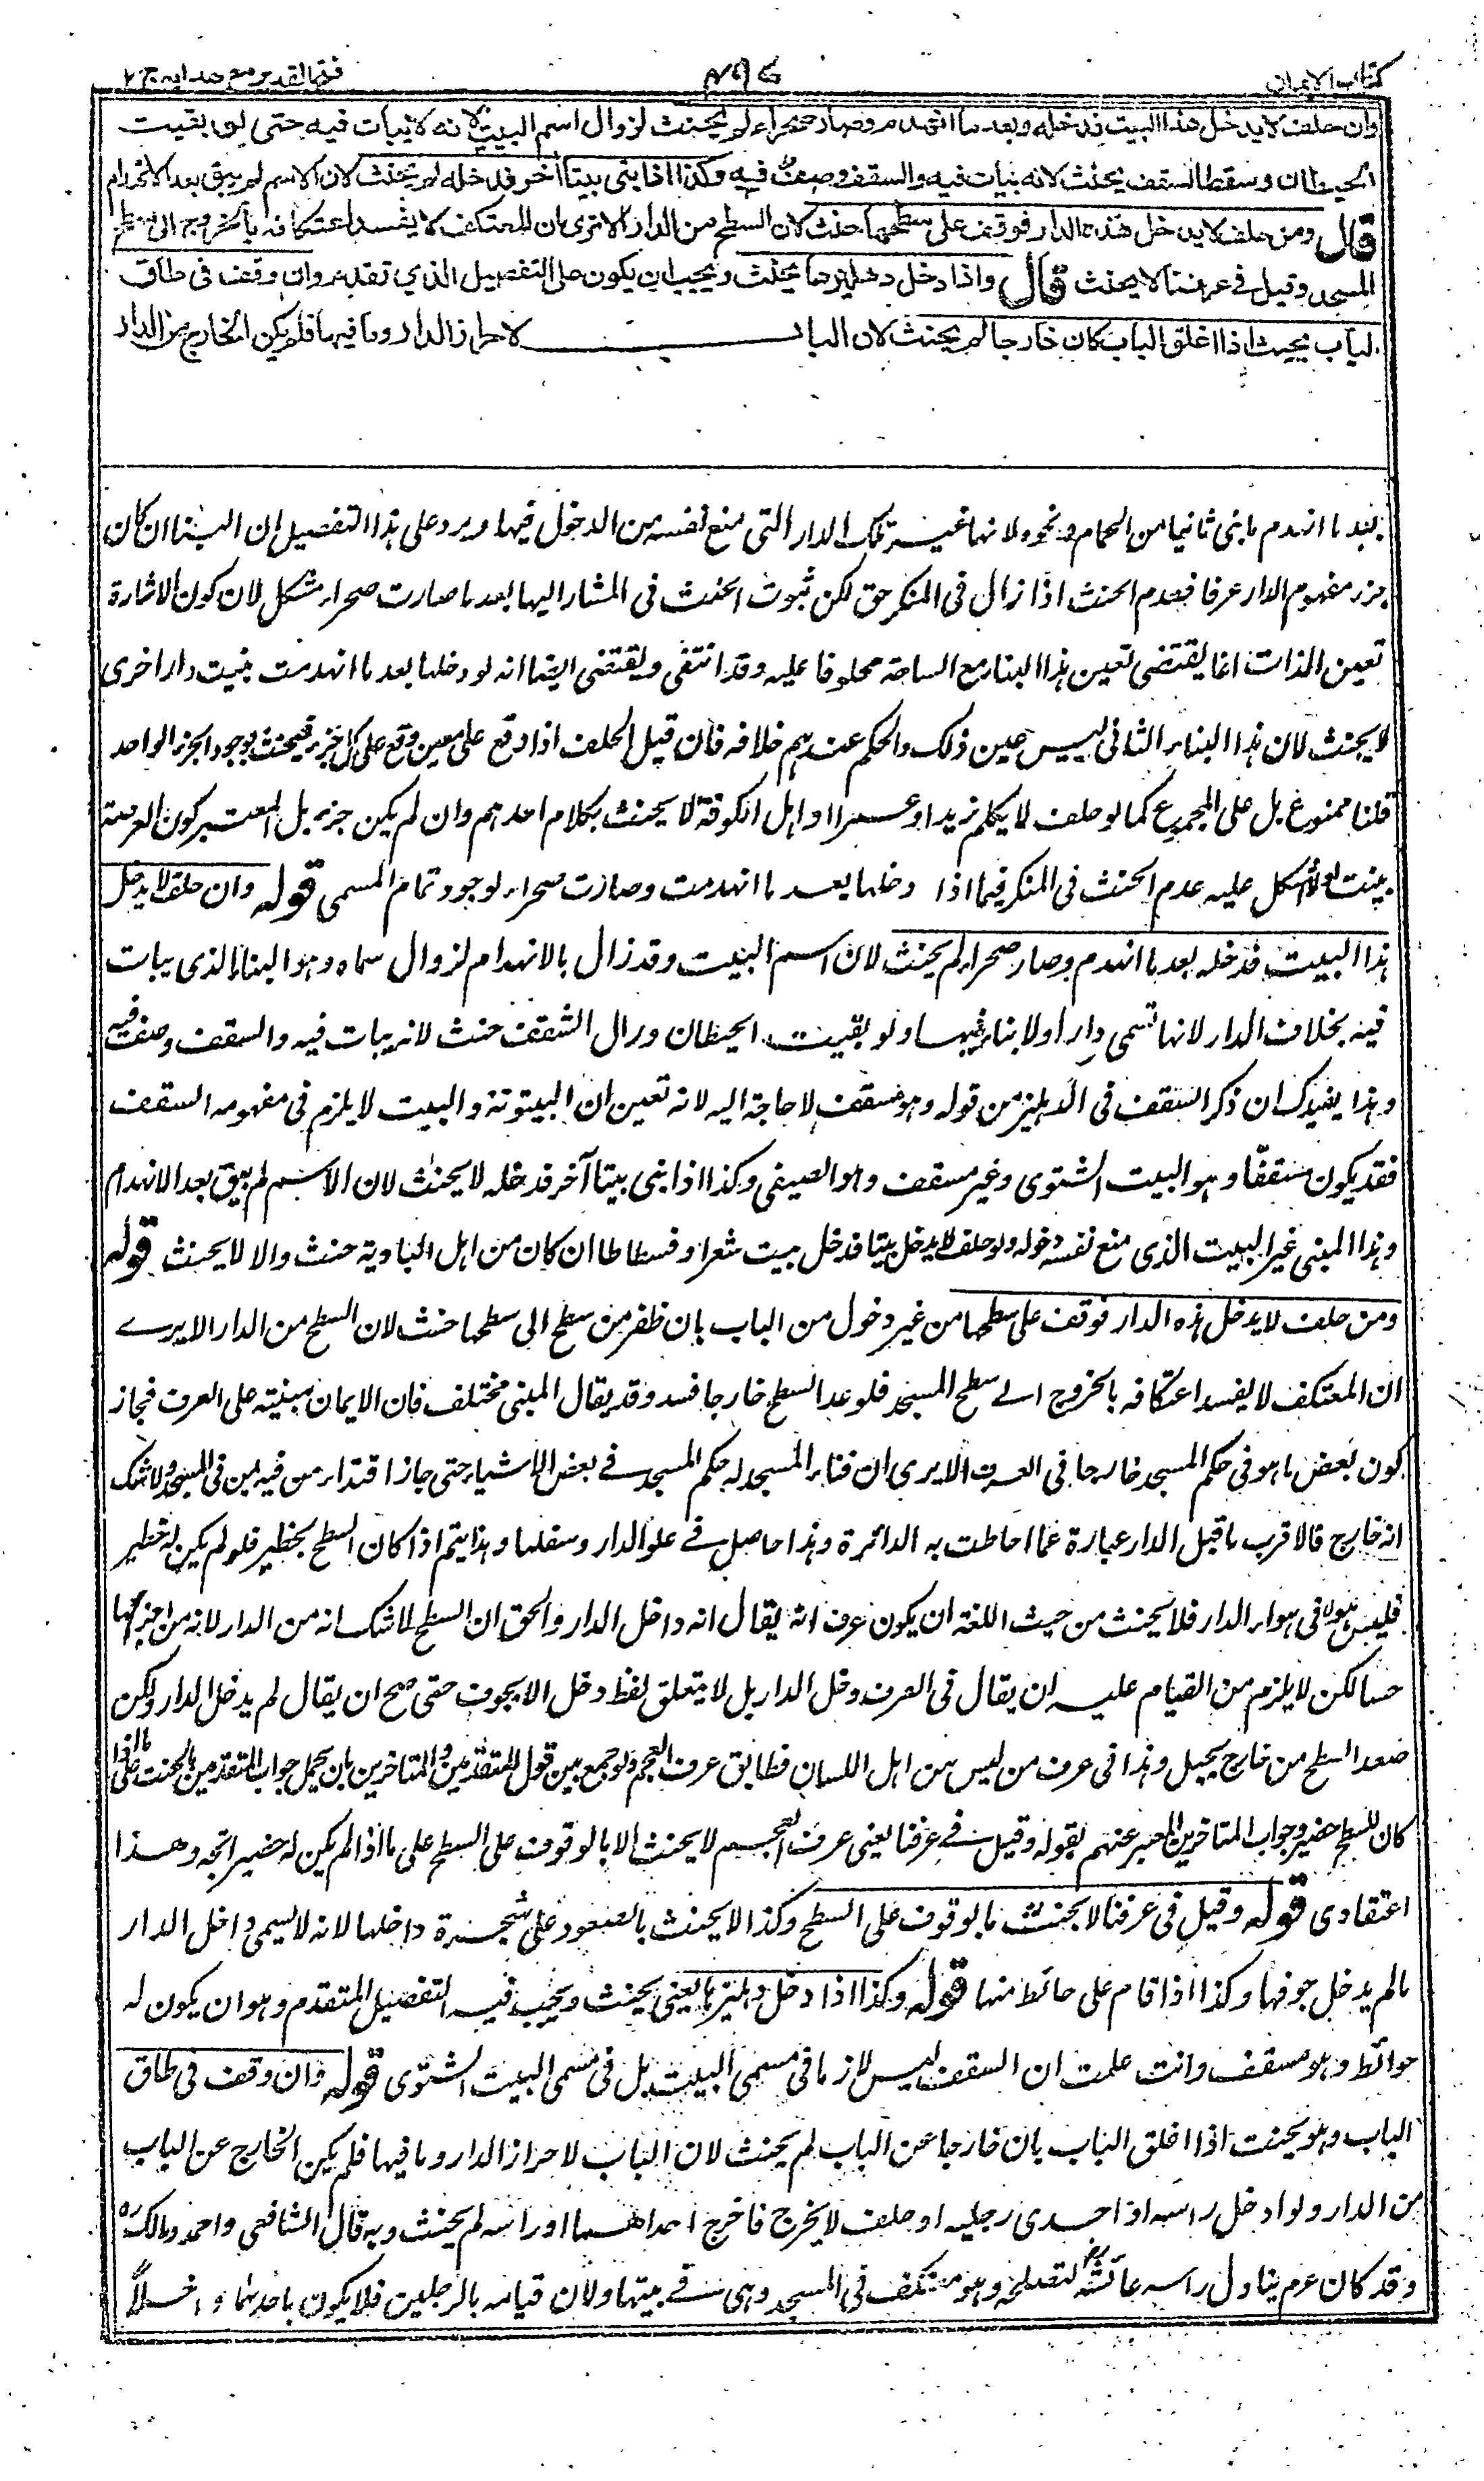 كتاب الايمان
فتح القدير مع هدايه ج ٢
وان حلف لا يدخل هذا البيت فدخله بعد ما انهدم وصار صحراء لم يحنث لزوال اسم البيت لانه لا يبات فيه حتى لو بقيت
الحيطان وسقط السقف يحنث لانه يبات فيه والسقف وصف فيه وكذا اذا بنى بيتا اخر فدخله لم يحنث لان الاسم لم يبق بعد الانهدام
قال ومن حلف لا يدخل هذه الدار فوقف على سطحها حنث لان السطح من الدار الا ترى ان المعتكف لا يفسد اعتكافه بالخروج الى سطح
المسجد وقيل في عرفنا لا يحنث قال واذا دخل دهليزها يحنث ويجب ان يكون على التفصيل الذي تقدم وان وقف فى طاق
الباب بحيث اذا اغلق الباب كان خارجا لم يحنث لان الباب لاحراز الدار وما فيها فلم يكن الخارج من الدار
بعد ما انهدم ما بنى ثانيا من الحمام ونحوه لانها غير تلك الدار التى منع نفسه من الدخول فيها ويرد على هذا التفصيل ان البناء ان كان
جزء مفهوم الدار عرفا فعدم الحنث اذا زال فى المنكر حق لكن ثبوت الحنث فى المشار اليها بعد ما صارت صحراء مشكل لان كون الاشارة
تعين الذات انما يقتضى تعين هذا البناء مع الساحة محلوفا عليه وقد انتفى ويقتضى ايضا انه لو دخلها بعد ما انهدمت بنيت دارا اخرى
لا يحنث لان هذا البناء الثانى ليس عين ذلك والحكم عندهم خلافه فان قيل الحلف اذا وقع على معين وقع على كل جزء فيحنث بوجود الجزء الواحد
قلنا ممنوع بل على المجموع كما لو حلف لا يكلم زيدا وعمرا او اهل الكوفة لا يحنث بكلام احدهم وان لم يكن جزء بل المعتبر كون العرصة
بنيت اشكل عليه عدم الحنث فى المنكر فيما اذا دخلها بعد ما انهدمت وصارت صحراء لوجود تمام المسمى قوله وان حلف لا يدخل
هذا البيت فدخله بعد ما انهدم وصار صحراء لم يحنث لان اسم البيت وقد زال بالانهدام لزوال مسماه وهو البناء الذى يبات
فيه بخلاف الدار لانها تسمى دارا ولا بناء فيها ولو بقيت الحيطان وزال السقف حنث لانه يبات فيه والسقف وصف فيه
وهذا يفيدك ان ذكر السقف فى الدهليز من قوله وهو مسقف لا حاجة اليه لانه تعين ان البيتوتة والبيت لا يلزم فى مفهومه السقف
فقد يكون مسقفا وهو البيت الشتوى وغير مسقف وهو الصيفى وكذا اذا بنى بيتا آخر فدخله لا يحنث لان الاسم لم يبق بعد الانهدام
وهذا المبنى غير البيت الذى منع نفسه دخوله ولو حلف لا يدخل بيتا فدخل بيت شعر او فسطاطا ان كان من اهل البادية حنث والا لا يحنث قوله
ومن حلف لا يدخل هذه الدار فوقف على سطحها من غير دخول من الباب بان ظفر من سطح الى سطحها حنث لان السطح من الدار الا يرے
ان المعتكف لا يفسد اعتكافه بالخروج الے سطح المسجد فلو عد السطح خارجا فسد وقد يقال المبنى مختلف فان الايمان مبنية على العرف فجاز
كون بعض ما هو فى حكم المسجد خارجا فى العرف الا يرى ان فناء المسجد له حكم المسجد فے بعض الاشياء حتى جاز اقتداء من فيه بمن فى المسجد ولا شك
انه خارج فالاقرب ما قيل الدار عبارة عما احاطت به الدائرة وهذا حاصل فے علو الدار وسفلها وهذا يتم اذا كان السطح بحظير فلو لم يكن له حظير
فليس هو الا فى هواء الدار فلا يحنث من حيث اللغة ان يكون عرف انه يقال انه داخل الدار والحق ان السطح لا شك انه من الدار لانه من اجزائها
حسا لكن لا يلزم من القيام عليه ان يقال فى العرف دخل الدار بل لا يتعلق لفظ دخل الا بجوف حتى صح ان يقال لم يدخل الدار ولكن
صعد السطح من خارج بحبل وهذا فى عرف من ليس من اهل اللسان فطابق عرف العجم ولو جمع بين قول المتقدمين والمتاخرين بان يحمل جواب المتقدمين بالحنث على ما اذا
كان للسطح حضير وجواب المتاخرين المعبر عنهم بقوله وقيل فے عرفنا يعنى عرف العجم لا يحنث الا بالوقوف على السطح على ما اذا لم يكن له حضير اتجه وهذا
اعتقادى قوله وقيل فى عرفنا لا يحنث بالوقوف على السطح وكذا لا يحنث بالصعود على شجرة داخلها لانه لا يسمى داخل الدار
ما لم يدخل جوفها وكذا اذا قام على حائط منها قوله وكذا اذا دخل دهليزها يعنى يحنث ويجب فيه التفصيل المتقدم وهو ان يكون له
حوائط وهو مسقف وانت علمت ان السقف ليس لازما فى مسمى البيت بل فى مسمى البيت الشتوى قوله وان وقف فى طاق
الباب وهو بحيث اذا اغلق الباب بان خارجا عن الباب لم يحنث لان الباب لاحراز الدار وما فيها فلم يكن الخارج عن الباب
من الدار ولو ادخل راسه او احدى رجليه او حلف لا يخرج فاخرج احداهما او راسه لم يحنث وبه قال الشافعي واحمد ومالك
وقد كان عم يناول راسه عائشة لتصلحه وهو معتكف فى المسجد وهى فے بيتها ولان قيامه بالرجلين فلا يكون باحدهما داخلاً